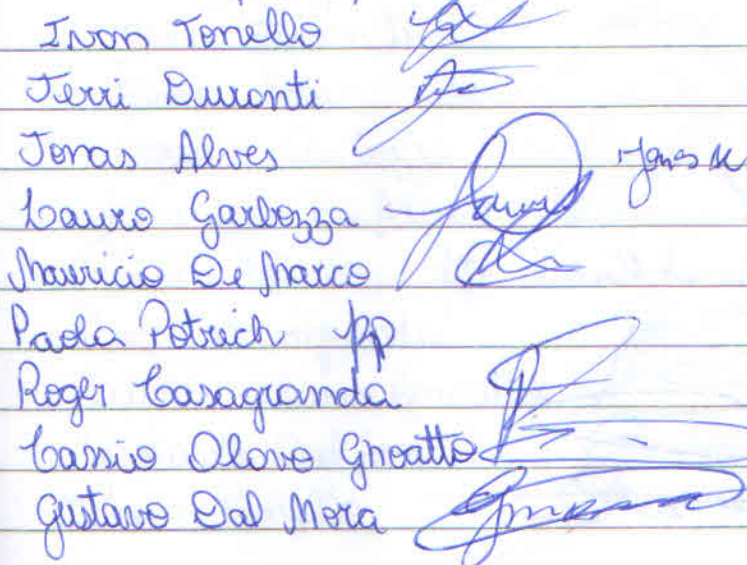 Ivan Tonello
Jerri Duranti
Jonas Alves
Lauro Garbozza
Mauricio De Marco
Paola Potrich PP
Roger Casagranda
Cassio Olavo Gnoatto
Gustavo Dal Mora